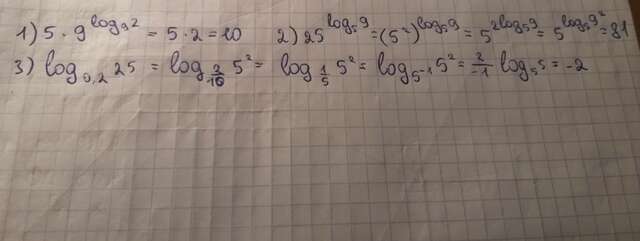 1) 5 · 9^{log_9 2} = 5 · 2 = 10 2) 25^{log_5 9} = (5^2)^{log_5 9} = 5^{2 log_5 9} = 5^{log_5 9^2} = 81
3) log_{0,2} 25 = log_{2/10} 5^2 = log_{1/5} 5^2 = log_{5^{-1}} 5^2 = 2/-1 log_5 5 = -2